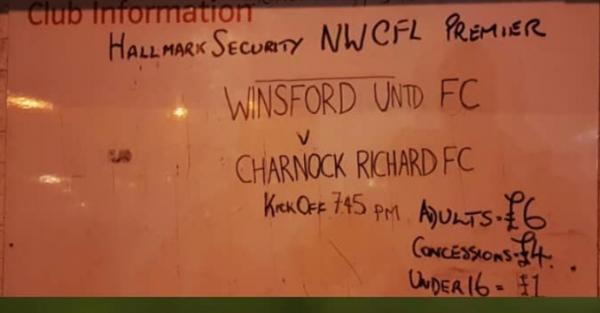 Club Information
HALLMARK SECURITY NWCFL PREMIER
WINSFORD UNTD FC
V
CHARNOCK RICHARD FC
KICK OFF 7.45 PM
ADULTS = £6
CONCESSIONS = £4.
UNDER 16 = £1